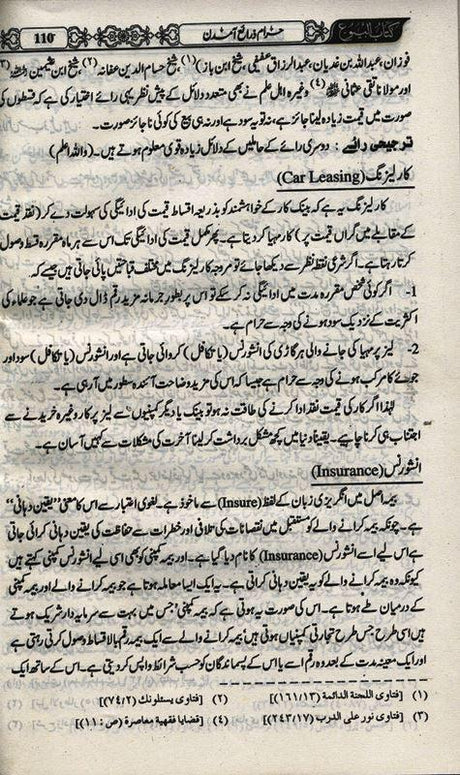 110 حرام ذرائع آمدن کتاب البیوع
فوزان، عبداللہ بن غدیان، عبدالرزاق عفیفی، شیخ ابن باز)(۱)، شیخ حسام الدین عفانہ (۲)، شیخ ابن عثیمین (۳)
اور مولانا تقی عثمانی (۴) وغیرہ اہل علم نے بھی متعدد دلائل کے پیش نظر یہی رائے اختیار کی ہے کہ قسطوں کی
صورت میں قیمت زیادہ لینا جائز ہے، نہ تو یہ سود ہے اور نہ ہی بیع کی کوئی ناجائز صورت۔
ترجیحی رائے : دوسری رائے کے حاملین کے دلائل زیادہ قوی معلوم ہوتے ہیں۔ (واللہ اعلم)
کار لیزنگ (Car Leasing)
کار لیزنگ یہ ہے کہ بینک کار کے خواہشمند کو بذریعہ اقساط قیمت کی ادائیگی کی سہولت دے کر (نقد قیمت
کے مقابلے میں گراں قیمت پر) کار مہیا کر دیتا ہے۔ پھر مکمل قیمت کی ادائیگی تک اس سے ہر ماہ مقررہ قسط وصول
کرتا رہتا ہے۔ اگر شرعی نقطہ نظر سے دیکھا جائے تو مروجہ کار لیزنگ میں مختلف قباحتیں پائی جاتی ہیں جیسے کہ
1- اگر کوئی شخص مقررہ مدت میں ادائیگی نہ کر سکے تو اس پر بطور جرمانہ مزید رقم ڈال دی جاتی ہے جو علماء کی
اکثریت کے نزدیک سود ہونے کی وجہ سے حرام ہے۔
2- لیز پر مہیا کی جانے والی ہر گاڑی کی انشورنس (یا تکافل) کروائی جاتی ہے اور انشورنس (یا تکافل) سود اور
جوئے کا مرکب ہونے کی وجہ سے حرام ہے جیسا کہ اس کی مزید وضاحت آئندہ سطور میں آ رہی ہے۔
لہٰذا اگر کار کی قیمت نقد ادا کرنے کی طاقت نہ ہو تو بینک یا دیگر کمپنیوں سے لیز پر کار وغیرہ خریدنے سے
اجتناب ہی کرنا چاہیے۔ یقیناً دنیا میں کچھ مشکل برداشت کر لینا آخرت کی مشکلات سے کہیں آسان ہے۔
انشورنس (Insurance)
بیمہ اصل میں انگریزی زبان کے لفظ (Insure) سے ماخوذ ہے۔ لغوی اعتبار سے اس کا معنی ”یقین دہانی“
ہے۔ چونکہ بیمہ کرانے والے کو مستقبل میں نقصانات کی تلافی اور خطرات سے حفاظت کی یقین دہانی کرائی جاتی
ہے اس لیے اسے انشورنس (Insurance) کا نام دیا گیا ہے۔ اور بیمہ کمپنی کو بھی اسی لیے انشورنس کمپنی کہتے ہیں
کیونکہ وہ بیمہ کرانے والے کو یہ یقین دہانی کراتی ہے۔ یہ ایک ایسا معاملہ ہوتا ہے جو بیمہ کرانے والے اور بیمہ کمپنی
کے درمیان طے ہوتا ہے۔ اس کی صورت یہ ہوتی ہے کہ بیمہ کمپنی جس میں بہت سے سرمایہ دار شریک ہوتے
ہیں اسی طرح جس طرح تجارتی کمپنیاں ہوتی ہیں بیمہ کرانے والے سے ایک بیمہ رقم بالاقساط وصول کرتی رہتی ہے
اور ایک معینہ مدت کے بعد وہ رقم اسے یا اس کے پسماندگان کو حسب شرائط واپس کر دیتی ہے۔ اس کے ساتھ ایک
(۱) [فتاوى اللجنة الدائمة (۱۶۱/۱۳)] (۲) [فتاوى يسئلونك (۷۴/۲)]
(۳) [فتاوى نور على الدرب (۲۴۳/۱۷)] (۴) [قضايا فقهية معاصرة (ص : ۱۱)]